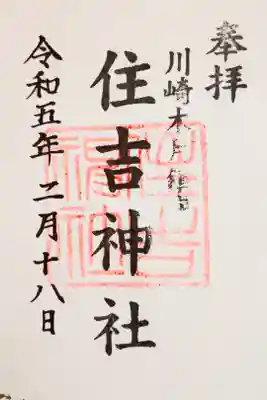 奉拝
川崎木月鎮
住吉神社
令和五年二月十八日